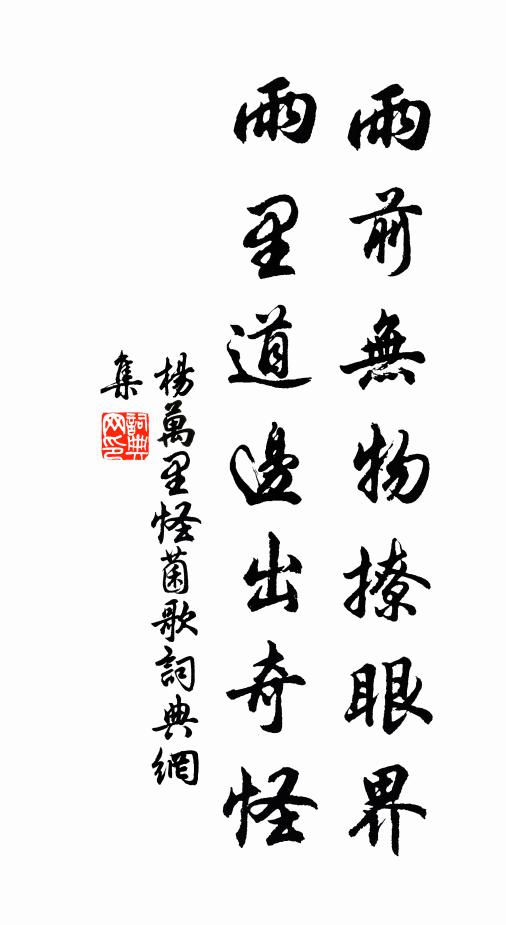 雨前無物撩眼界
雨里道邊出奇怪
楊萬里怪菌歌詞典網
集
詞典
网印